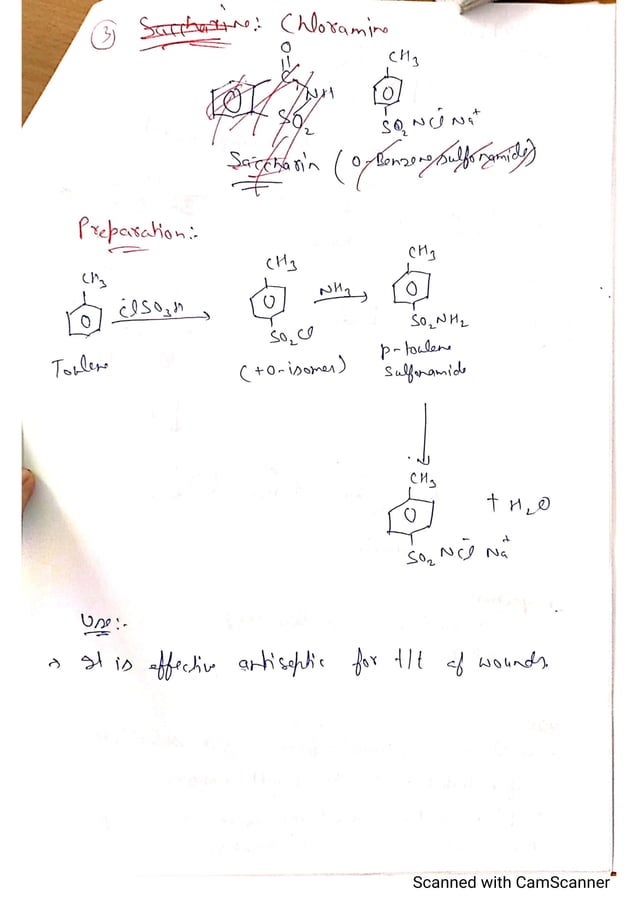 ③ Saccharine: Chloramine
O
||
C
NH
SO2
CH3
SO2 NCl⁻ Na⁺
Saccharin (O-Benzene sulfonamide)
Preparation:-
CH3
ClSO3H
Toulene
CH3
SO2Cl
(+O-isomer)
NH3
CH3
SO2NH2
p-toulene
Sulfonamide
CH3
SO2 NCl⁻ Na⁺
+ H2O
Use:-
→ It is effective antiseptic for t/t of wounds.
Scanned with CamScanner